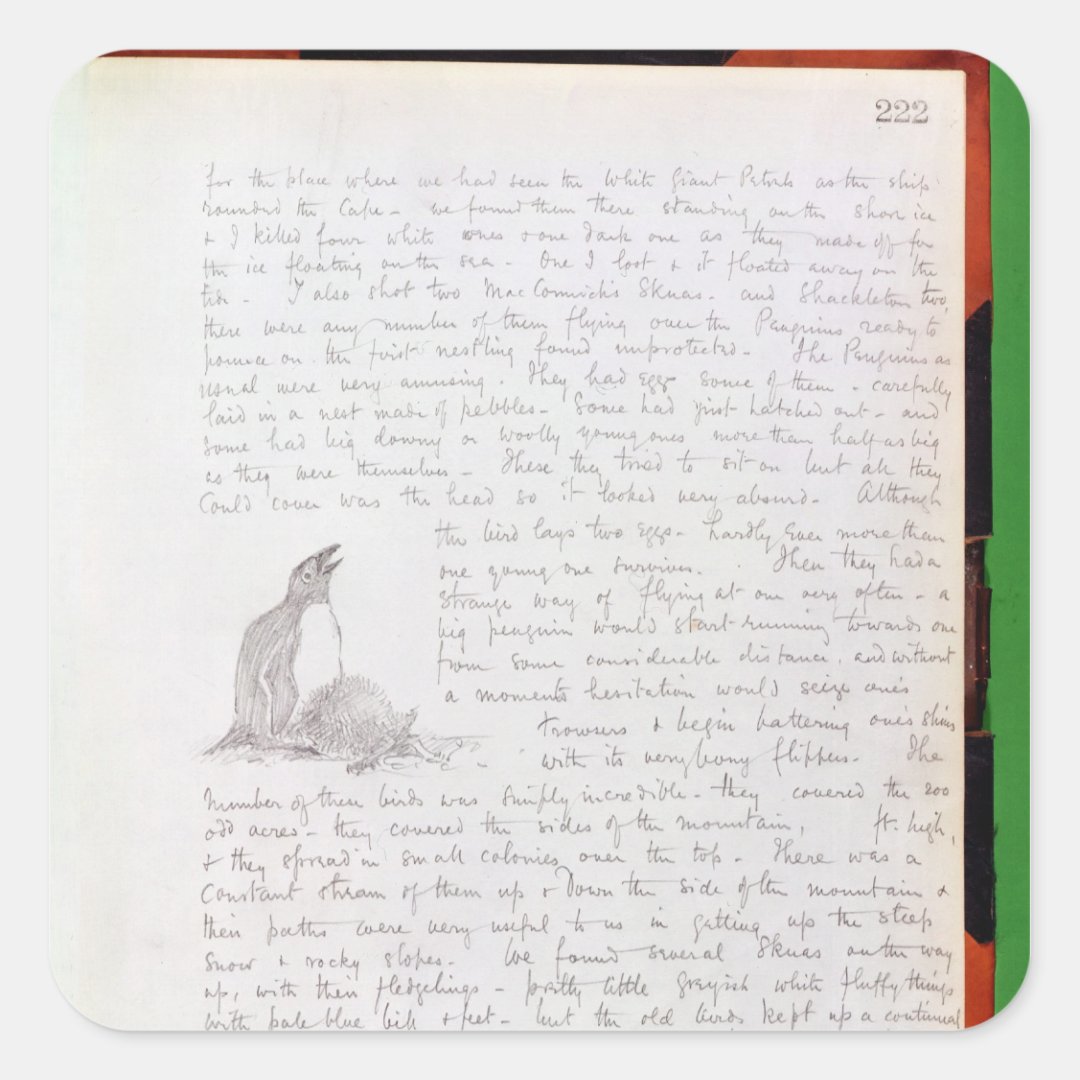 222
for the place where we had seen the White Giant Petrels as the ship
rounded the Cape - we found them there standing on the shore ice
& I killed four white ones & one dark one as they made off for
the ice floating on the sea - One I lost & it floated away on the
tide - I also shot two MacCormick's Skuas - and Shackleton two,
there were any number of them flying over the Penguins ready to
pounce on the first nestling found unprotected - The Penguins as
usual were very amusing. They had eggs some of them - carefully
laid in a nest made of pebbles - Some had just hatched out - and
some had big downy or woolly young ones more than half as big
as they were themselves - These they tried to sit on but all they
could cover was the head so it looked very absurd - Although
the bird lays two eggs - hardly ever more than
one young one survives. Then they had a
strange way of flying at one very often - a
big penguin would start running towards one
from some considerable distance, and without
a moment's hesitation would seize one's
trowsers & begin battering one's shins
with its very bony flippers - The
number of these birds was simply incredible - they covered the 200
odd acres - they covered the sides of the mountain, ft. high,
& they spread in small colonies over the top - There was a
constant stream of them up & down the side of the mountain &
their paths were very useful to us in getting up the steep
snow & rocky slopes - We found several Skuas on the way
up, with their fledgelings - pretty little greyish white fluffy things
with pale blue bill & feet - but the old birds kept up a continual